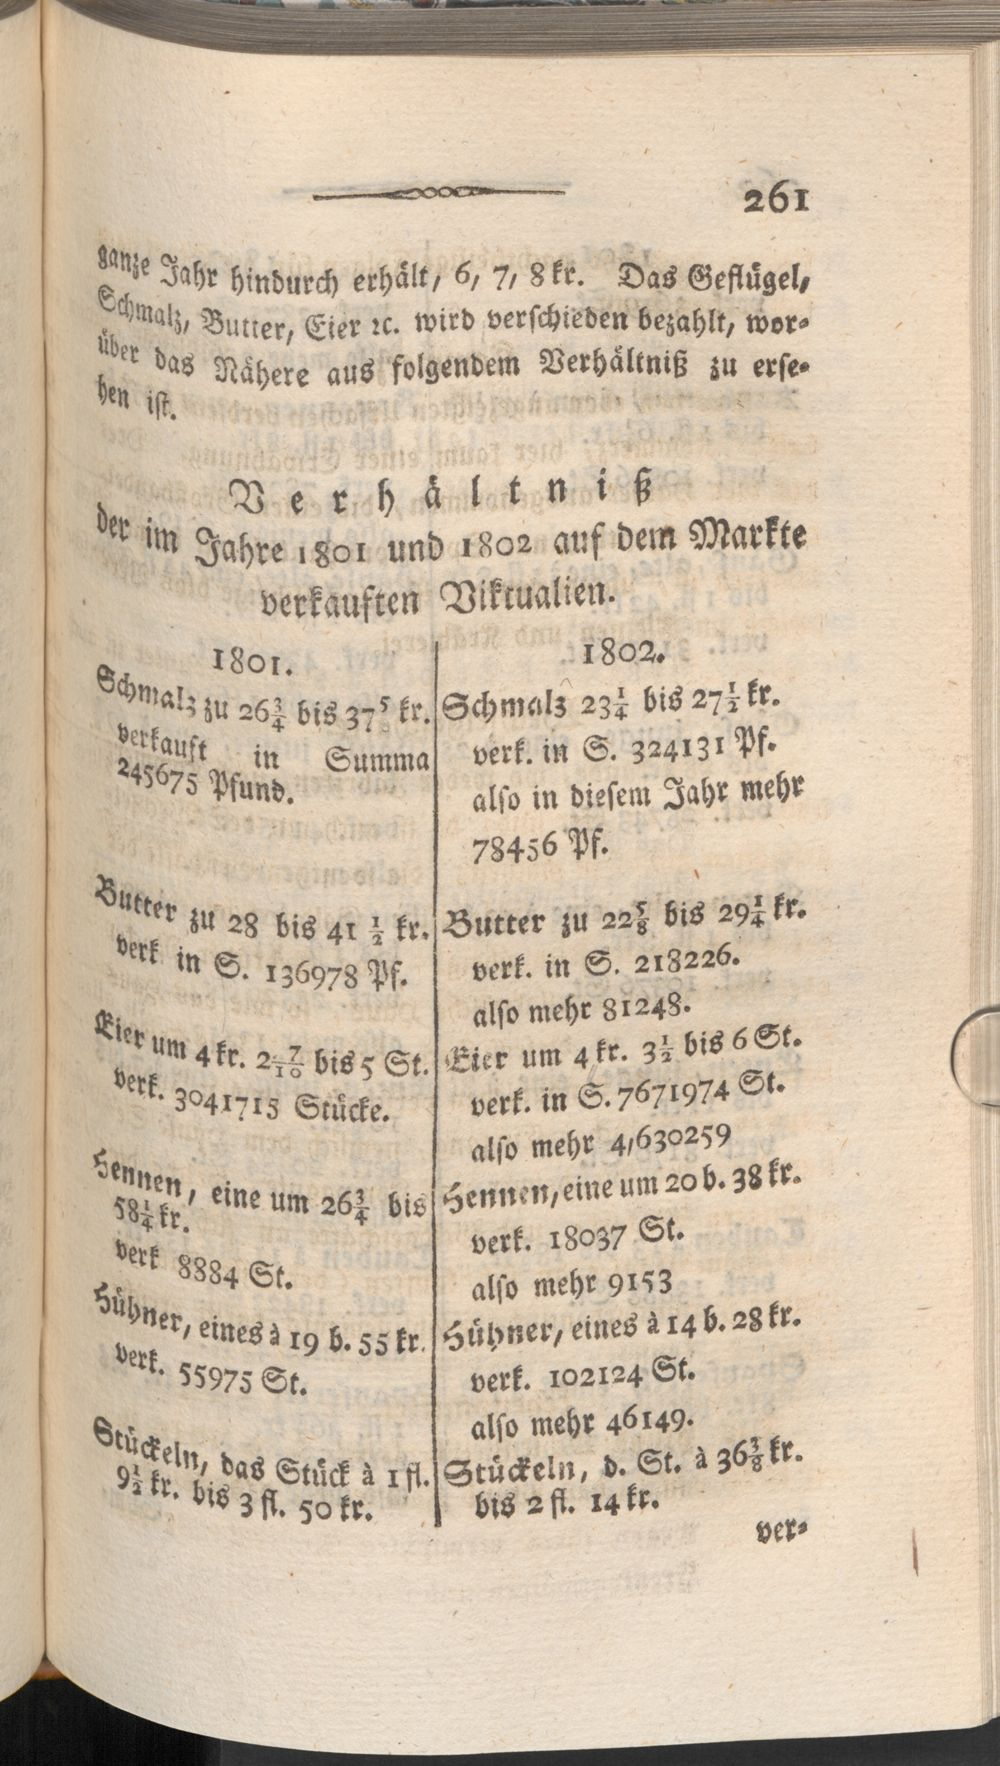 261
ganze Jahr hindurch erhält, 6, 7, 8 kr. Das Geflügel,
Schmalz, Butter, Eier ꝛc. wird verschieden bezahlt, wor-
über das Nähere aus folgendem Verhältniß zu erse-
hen ist.
Verhältniß
der im Jahre 1801 und 1802 auf dem Markte
verkauften Viktualien.
1801.
Schmalz zu 26¾ bis 37⅝ kr.
verkauft in Summa
245675 Pfund.
Butter zu 28 bis 41 ½ kr.
verk in S. 136978 Pf.
Eier um 4 kr. 2 7/10 bis 5 St.
verk. 3041715 Stücke.
Hennen, eine um 26¾ bis
58¼ kr.
verk 8884 St.
Hühner, eines à 19 b. 55 kr.
verk. 55975 St.
Stückeln, das Stück à 1 fl.
9½ kr. bis 3 fl. 50 kr.
1802.
Schmalz 23¼ bis 27½ kr.
verk. in S. 324131 Pf.
also in diesem Jahr mehr
78456 Pf.
Butter zu 22⅝ bis 29¼ kr.
verk. in S. 218226.
also mehr 81248.
Eier um 4 kr. 3½ bis 6 St.
verk. in S. 7671974 St.
also mehr 4,630259
Hennen, eine um 20 b. 38 kr.
verk. 18037 St.
also mehr 9153
Hühner, eines à 14 b. 28 kr.
verk. 102124 St.
also mehr 46149.
Stückeln, d. St. à 36⅜ kr.
bis 2 fl. 14 kr.
ver-